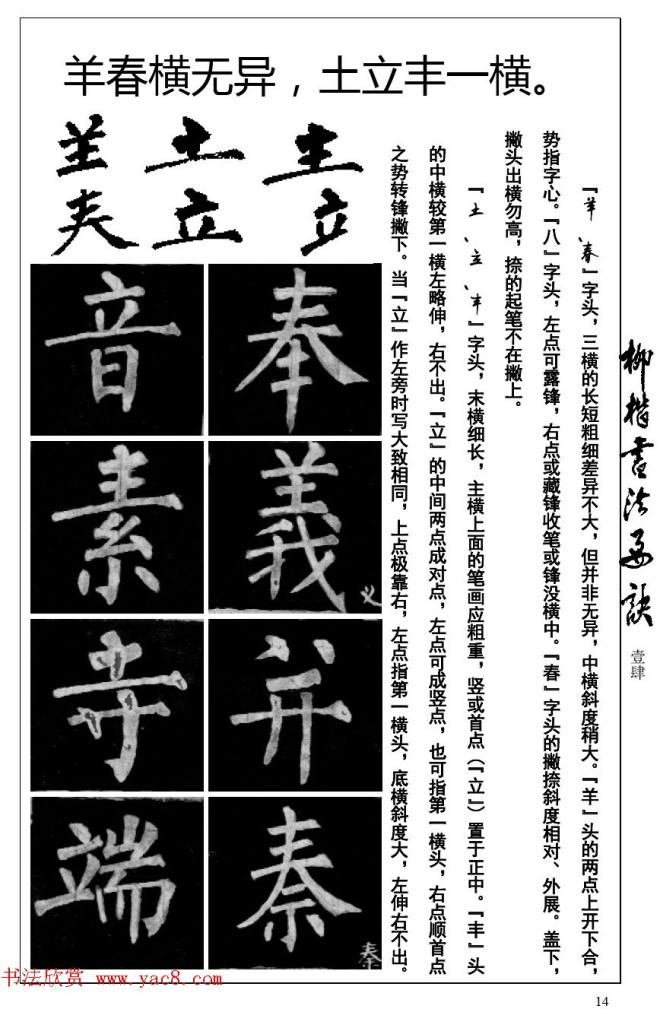 羊春横无异，土立丰一横。
『羊、春』字头，三横的长短粗细差异不大，但并非无异，中横斜度稍大。『羊』头的两点上开下合，
势指字心。『八』字头，左点可露锋，右点或藏锋收笔或锋没横中。『春』字头的撇捺斜度相对、外展。盖下，
撇头出横勿高，捺的起笔不在撇上。
『土、立、丰』字头，末横细长，主横上面的笔画应粗重，竖或首点（『立』）置于正中。『丰』头
的中横较第一横左略伸，右不出。『立』的中间两点成对点，左点可成竖点，也可指第一横头，右点顺首点
之势转锋撇下。当『立』作左旁时写大致相同，上点极靠右，左点指第一横头，底横斜度大，左伸右不出。
土
立
立
音
奉
素
義
义
寺
并
端
秦
秦
柳楷书法要诀
壹肆
书法欣赏 www.yac8.com
14